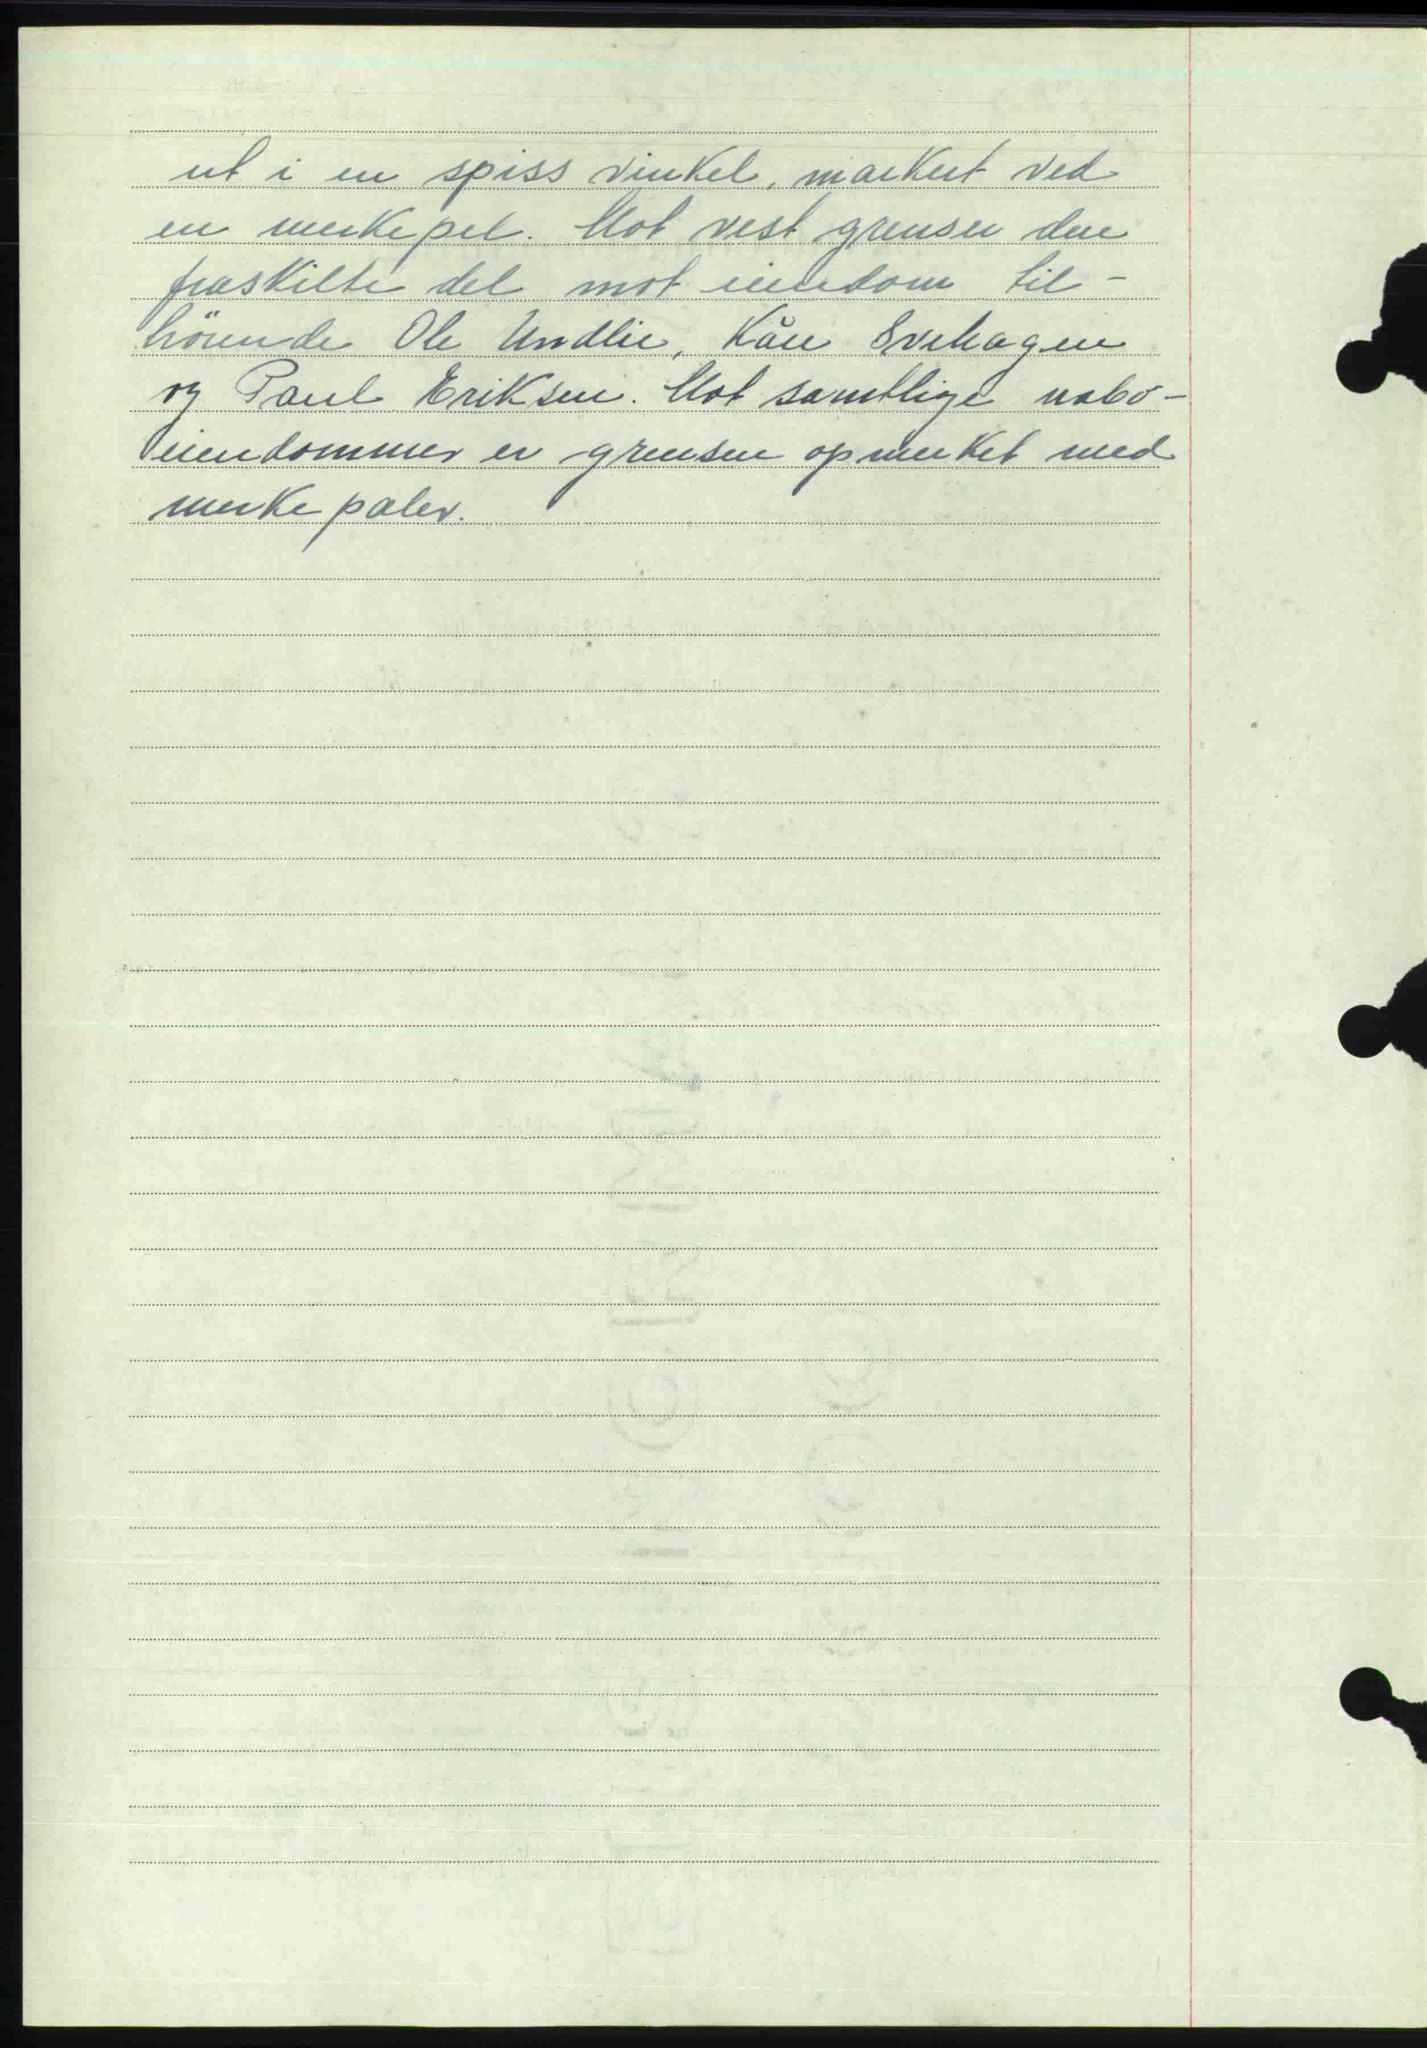 ut i en spiss vinkel, markert ved
en merkepel. Mot vest grenser den
fraskilte del mot eiendom til-
hörende Ole Undlie, Kåre Svehagen
og Paul Eriksen. Mot samtlige nabo-
eiendommer er grensen opmerket med
merkepæler.